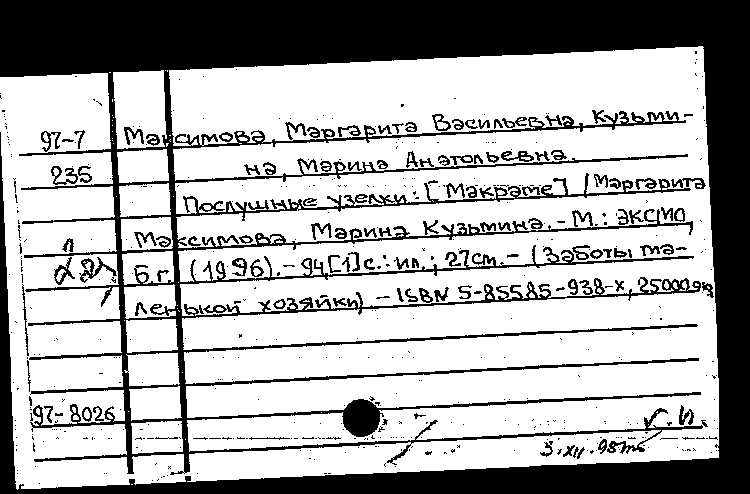 97-7 Максимова, Маргарита Васильевна, Кузьми-
235 на, Марина Анатольевна.
Послушные узелки: [Макраме] / Маргарита
Максимова, Марина Кузьмина. - М.: ЭКСМО,
Б.г. (1996). - 94,[1]с.: ил.; 27см. - (Заботы ма-
ленькой хозяйки). - ISBN 5-85585-938-х, 25000экз
97-8026
3.XII.98